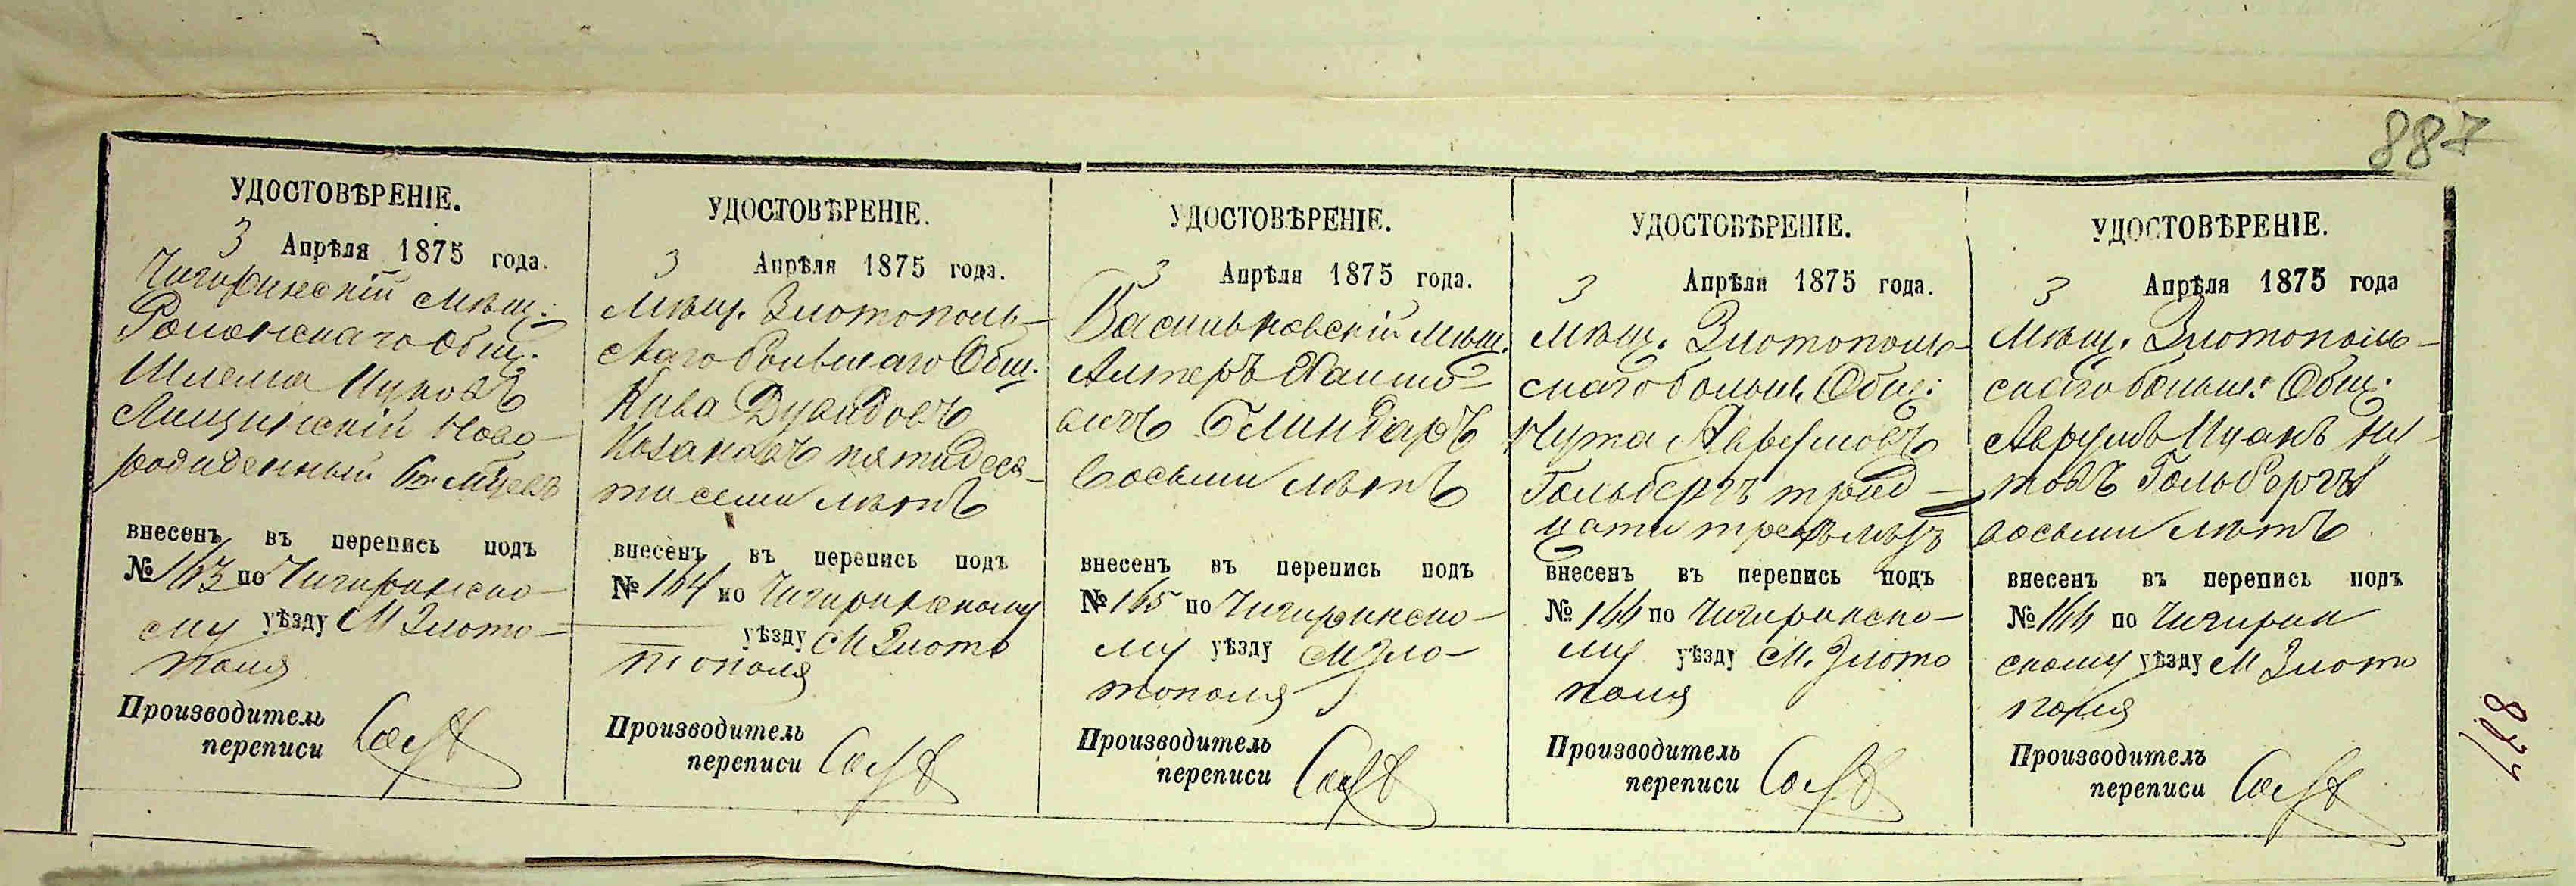 887
УДОСТОВѢРЕНІЕ.
3 Апрѣля 1875 года.
Чигиринскій мѣщ.
Общ.
Шлема Ицковъ
ново-
рожденный
внесенъ въ перепись подъ
№ 163 по Чигиринско-
му уѣзду М Злото-
поля
Производитель
переписи
УДОСТОВѢРЕНІЕ.
3 Апрѣля 1875 года.
Мѣщ. Злотополь-
скаго большаго Общ.
Кива Дувидовъ
Казановъ пятидеся-
ти семи лѣтъ
внесенъ въ перепись подъ
№ 164 по Чигиринскому
уѣзду М Злото
тополя
Производитель
переписи
УДОСТОВѢРЕНІЕ.
3 Апрѣля 1875 года.
Васильковскій мѣщ.
Алтеръ
восьми лѣтъ
внесенъ въ перепись подъ
№ 165 по Чигиринско-
му уѣзду М Зло-
тополя
Производитель
переписи
УДОСТОВѢРЕНІЕ.
3 Апрѣля 1875 года.
Мѣщ. Злотополь-
скаго больш. Общ.
Нута Аврумовъ
Гольбергъ трид-
цати трехъ лѣтъ
внесенъ въ перепись подъ
№ 166 по Чигиринско-
му уѣзду М. Злото
поля
Производитель
переписи
УДОСТОВѢРЕНІЕ.
3 Апрѣля 1875 года
Мѣщ. Злотополь-
скаго больш: Общ.
Аврумъ Ицакъ Ну-
товъ Гольбергъ
восьми лѣтъ
внесенъ въ перепись подъ
№ 166 по Чигирин
скому уѣзду М Злото
поля
Производитель
переписи
887